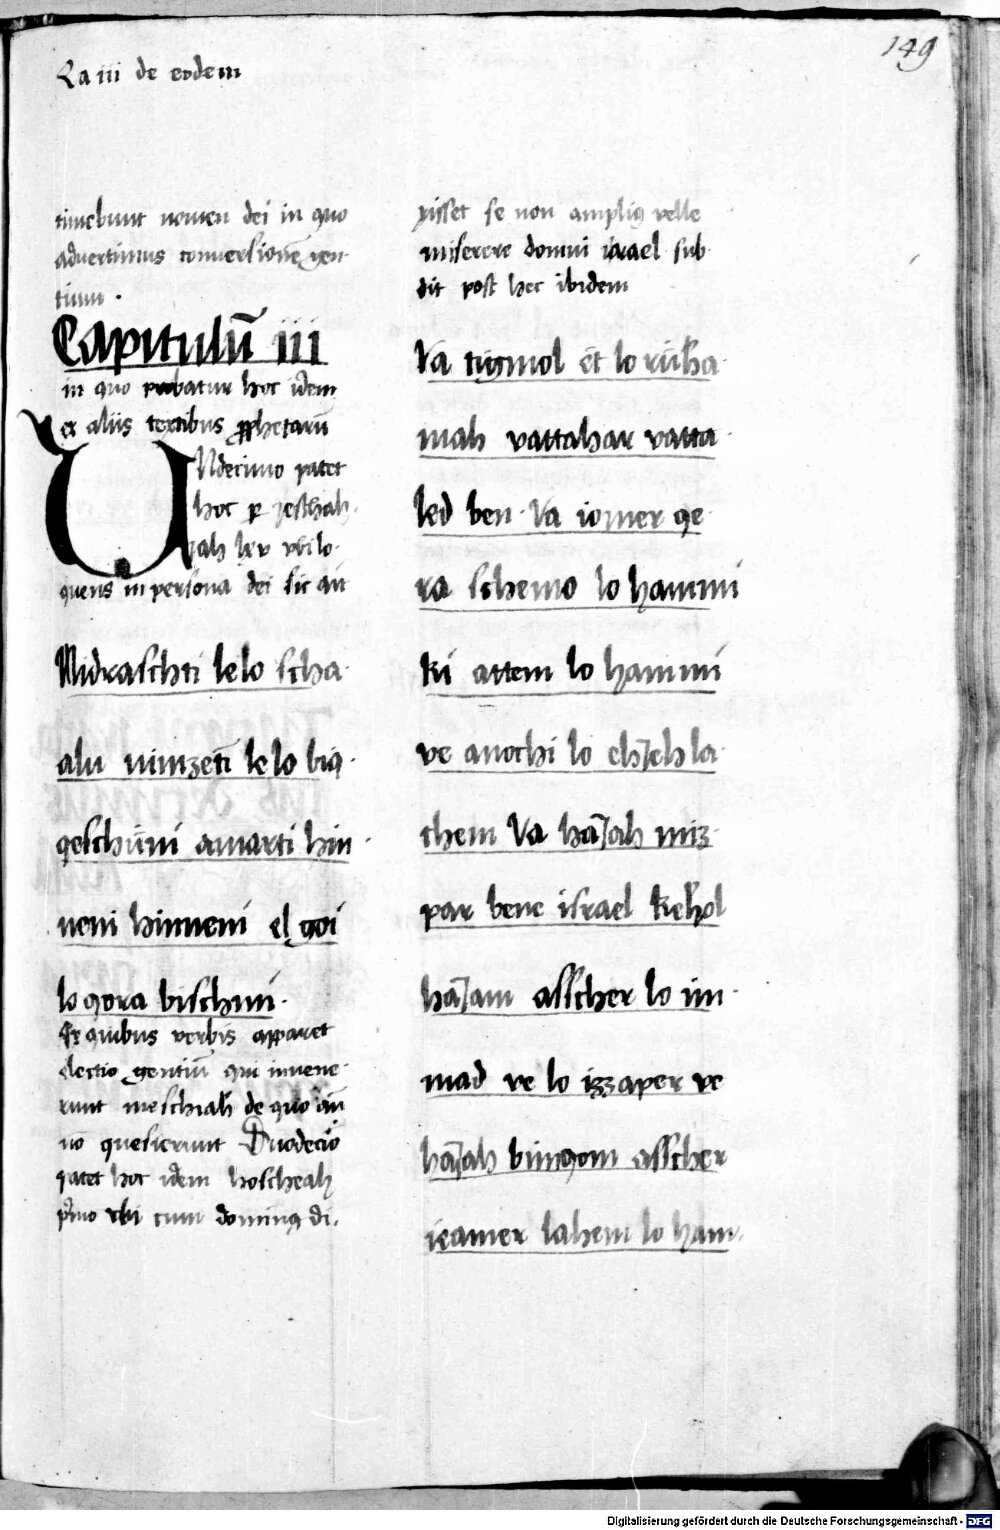 Ca iii de eodem
149
timebunt nomen dei in quo
advertimus conversionē gen·
tium ·
Capitulū iii
in quo probatur hoc idem
ex aliis textibus ꝓphetarū
VNdecimo patet
hoc ꝑ jeschah·
iah lxv ubi lo·
quens in persona dei sic ait
Nidraschti lelo scha·
alu nimzeti lelo biq·
qeschuni amarti hin·
neni hinneni el goi
lo qora bischmi·
Ex quibus verbis apparet
electio gentiū qui invene·
runt meschiah de quo añ
nō quesierunt Duodecīo
patet hoc idem hoscheah
pͥmo ubi cum dominꝰ di·
xisset se non ampliꝰ velle
miserere domui israel sub·
dit post hec ibidem
Va tigmol et lo ruha·
mah vattahar vatta·
led ben · Va iomer qe·
ra schemo lo hammi
ki attem lo hammi
ve anochi lo ehjeh la·
chem Va hajah miz·
par bene israel kehol
hajam asscher lo im·
mad ve lo izzaper ve
hajah bimqom asscher
ieamer lahem lo ham·
Digitalisierung gefördert durch die Deutsche Forschungsgemeinschaft - DFG